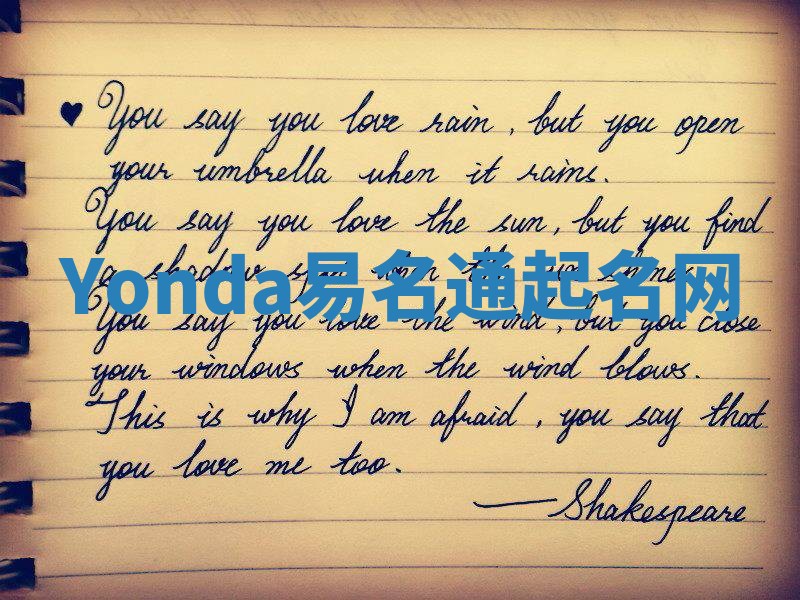 ♥ You say you love rain, but you open
your umbrella when it rains.
You say you love the sun, but you find
a shadow spot when the sun shines.
Yonda易名通起名网
You say you love the wind, but you close
your windows when the wind blows.
This is why I am afraid, you say that
you love me too.
— Shakespeare